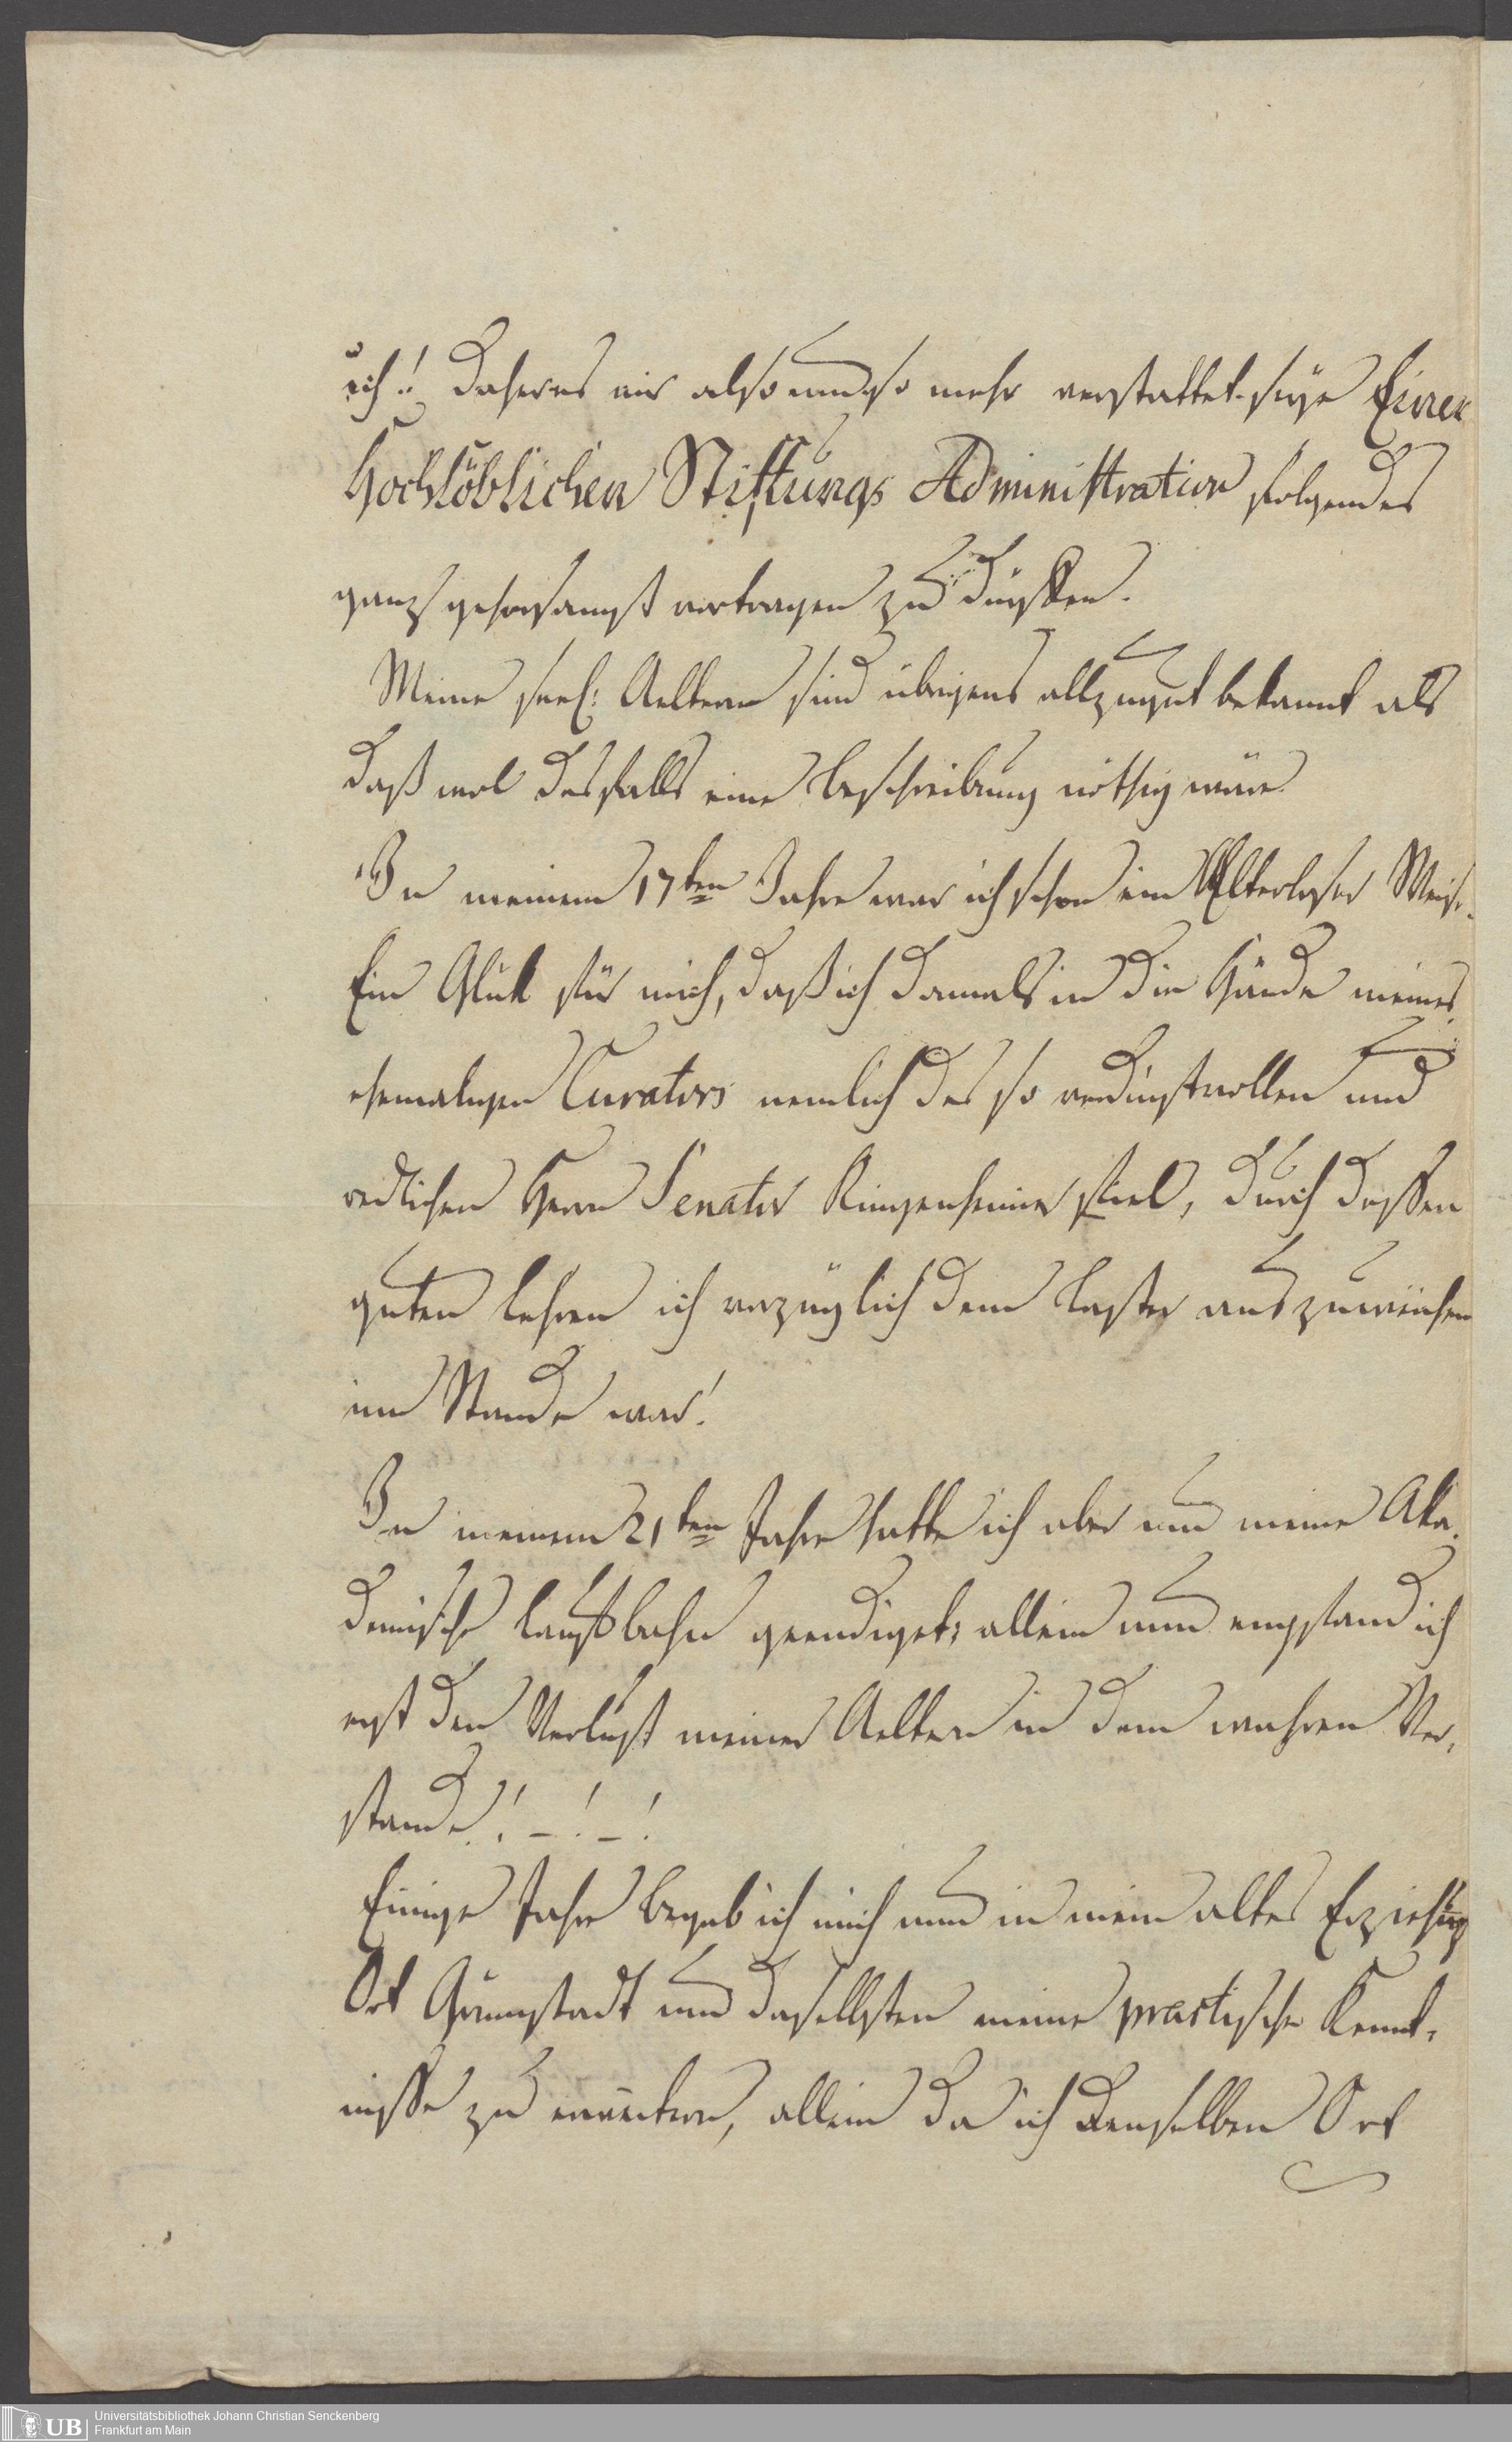 ich!! Daher es mir also um so mehr verstattet seye Einer
Hochlöblichen Stiftungs Administration folgendes
ganz gehorsamst vortragen zu dürffen.
Meine seel: Aeltern sind übrigens allzugut bekannt als
daß wol desfalls eine Beschreibung nöthig wäre.
In meinem 17ten Jahre war ich schon ein Elterloser Weise.
Ein Glük für mich, daß ich damals in die Hände meines
ehemaligen Curators nemlich des so verdinstvollen und
redlichen Herrn Senator fiel, durch dessen
guten Lehren ich vorzüglich dem Laster auszuweichen
im Stande war!
In meinem 21ten Jahre hatte ich aber nun meine Aka,
demische Laufbahn geendiget; allein nun empfand ich
erst den Verlust meiner Aeltern in dem wahren Ver,
stande! _ ! _ !
Einige Jahre begab ich mich nun in mein altes Erziehungs
Ort Grünstadt um daselbsten meine practische Kennt,
nisse zu erweitern, allein da ich denselben Ort
Universitätsbibliothek Johann Christian Senckenberg
Frankfurt am Main
UB